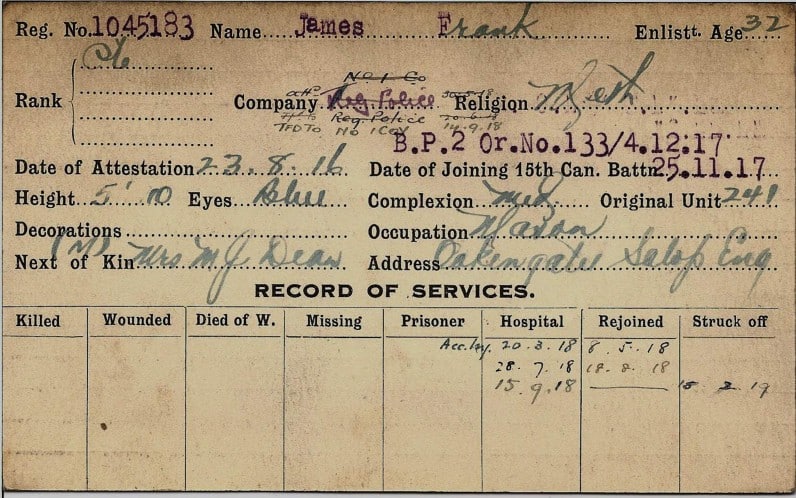 Reg. No. 1045183 Name James Frank Enlistt. Age 32
Pte
No 1 Co
Rank Company Reg. Police 30-5-18 Religion Meth
Reg Police 20-6-18
TFD To No 1 Coy 14.9.18
B.P.2 Or.No.133/4.12:17
Date of Attestation 23.8.16 Date of Joining 15th Can. Battn. 25.11.17
Height 5' 10 Eyes Blue Complexion Med Original Unit 241
Decorations Occupation Mason
Next of Kin (M) Mrs M J Dean Address Oakengates Salop Eng
RECORD OF SERVICES.
Killed Wounded Died of W. Missing Prisoner Hospital Rejoined Struck off
Acc. Inj. 20.3.18 8.5.18
28.7.18 18.8.18
15.9.18 15 2 19